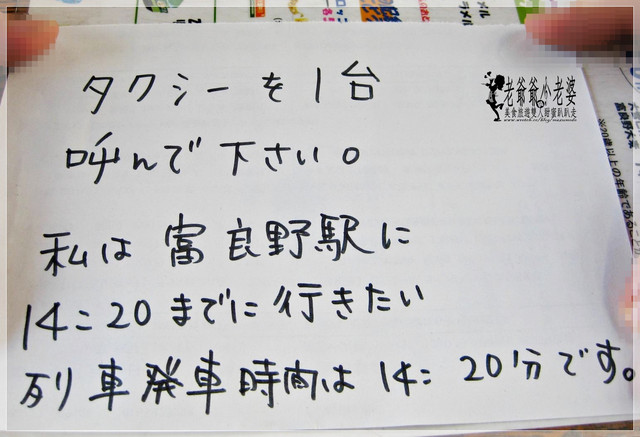 タクシーを1台
呼んで下さい。
私は富良野駅に
14:20までに行きたい
列車発車時間は14:20分です。
老爺爺小老婆
美食旅遊雙人甜蜜趴趴走